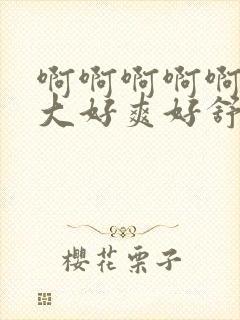 啊啊啊啊啊
大好爽好舒
櫻花栗子